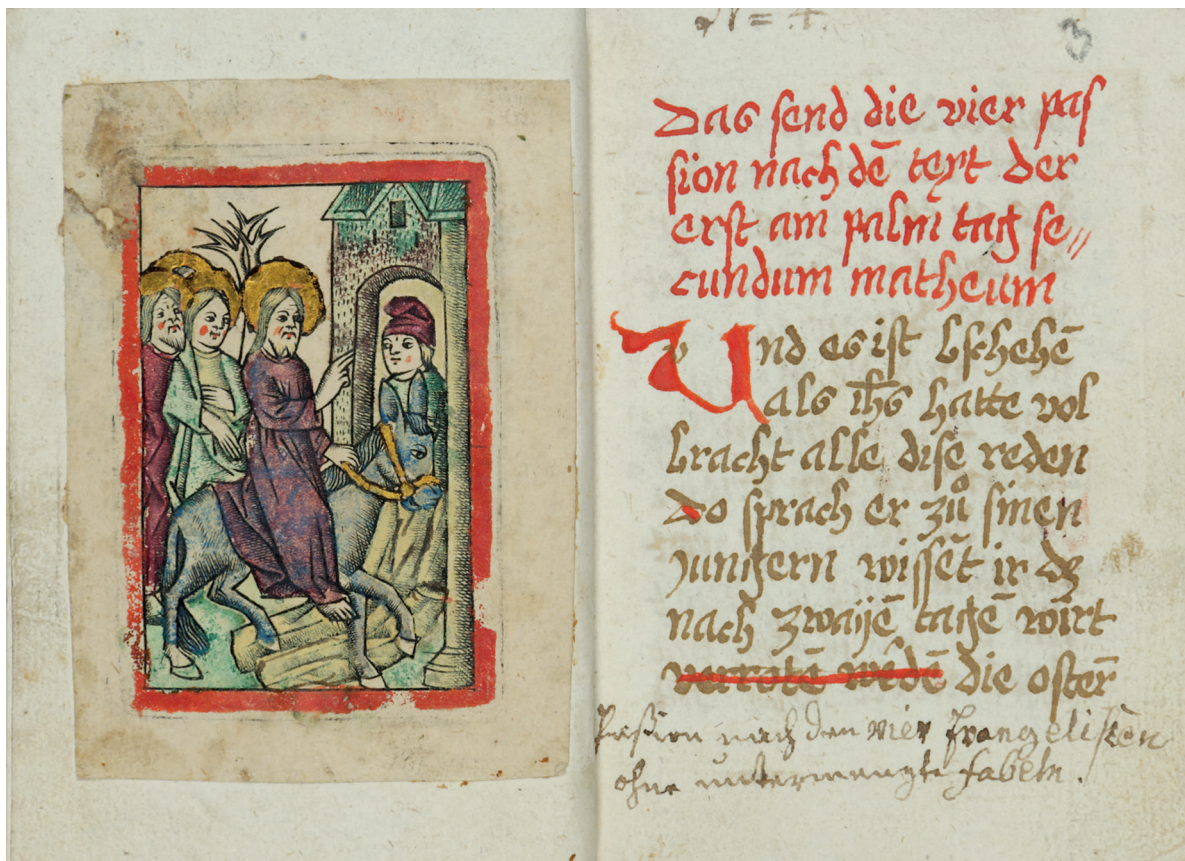 3
Das send die vier pas
sion nach dē text der
erst am palm tag se//
cundum matheum
Und es ist bschehē
als ihs hatte vol
bracht alle dise reden
Do sprach er zů sinen
Jungern wissēt ir dz
nach zwaijē tagē wirt
verrotē wedē die osterr̄
Passion nach den vier Evangelisten
ohne untermengte fabeln.